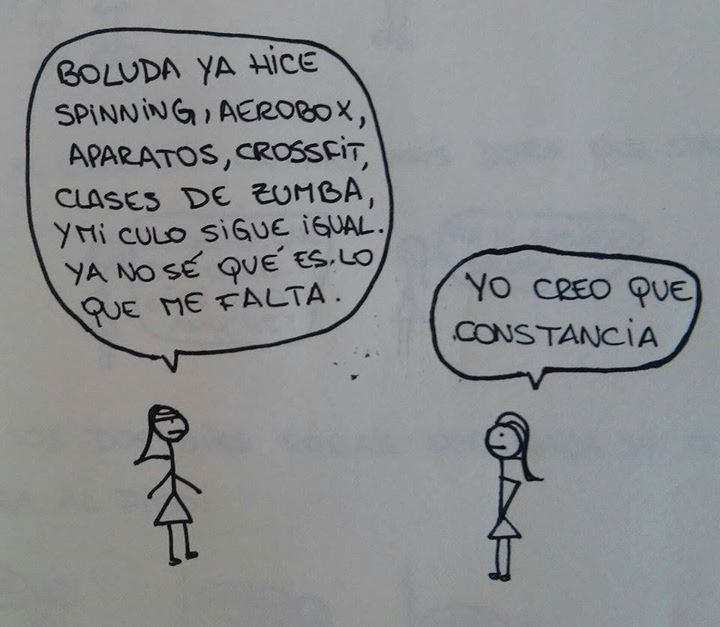 BOLUDA YA HICE
SPINNING, AEROBOX,
APARATOS, CROSSFIT,
CLASES DE ZUMBA,
Y MI CULO SIGUE IGUAL.
YA NO SÉ QUÉ ES LO
QUE ME FALTA.
YO CREO QUE
CONSTANCIA